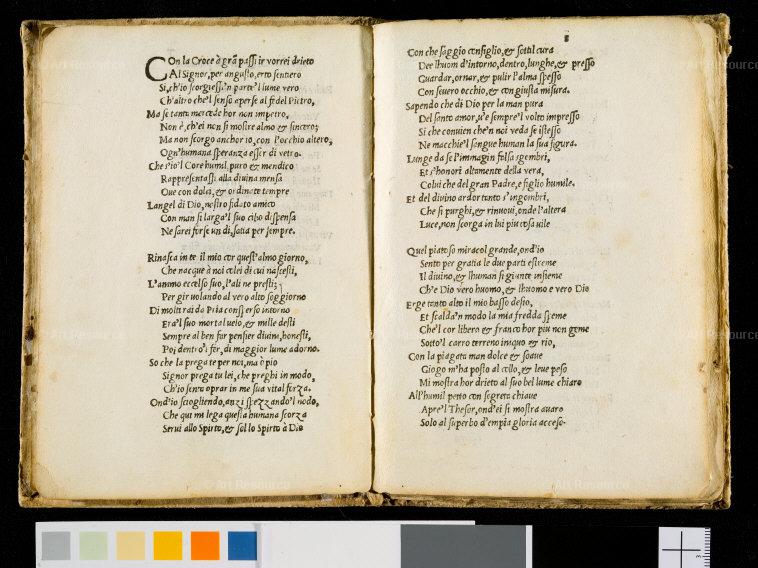 Con la Croce à grã passi ir vorrei drieto
Al Signor, per angusto, erto sentiero
Si, ch'io scorgessi'n parte'l lume vero
Ch'altro che'l senso aperse al fidel Pietro,
Ma se tanta mercede hor non impetro,
Non è, ch'ei non si mostre almo & sincero;
Ma non scorgo anchor io, con l'occhio altero,
Ogn'humana speranza esser di vetro.
Che s'io'l Core humil, puro & mendico
Rappresentassi alla divina mensa
Oue con dolci, & ordinate tempre
Langel di Dio, nostro fidato amico
Con man si larga'l suo cibo dispensa
Ne sarei forse un dì, satia per sempre.
Rinasca in te il mio cor quest'almo giorno,
Che nacque à noi colei di cui nascesti,
L'animo eccelso suo, l'ali ne presti;
Per gir uolando al vero alto soggiorno
Di molti rai da Pria conspersо intorno
Era'l suo mortal uelo, & mille desti
Sempre al ben far pensier diuini, honesti,
Poi dentro'i fer, di maggior lume adorno.
So che la prega te per noi, ma ò pio
Signor prega tu lei, che preghi in modo,
Ch'io senta oprar in me sua vital forza.
Ond'io sciogliendo, anzi spezzando'l nodo,
Che qui mi lega questa humana scorza
Serui allo Spirto, & sol lo Spirto à Dio
8
Con che saggio consiglio, & sottil cura
Dee lhuom d'intorno, dentro, lunghe, & presso
Guardar, ornar, & pulir l'alma spesso
Con seuero occhio, & con giusta misura.
Sapendo che di Dio per la man pura
Del santo amor, u'e sempre'l volto impresso
Si che conuien che'n noi veda se istesso
Ne macchie'l sengue human la sua figura.
Lunge da se l'immagin falsa sgembri,
Et s'honori altamente della vera,
Colui che del gran Padre, e figlio humile.
Et del divino ardor tanto s'ingombri,
Che si purghi, & rinuoui, onde l'altera
Luce, non scorga in lui piu cosa uile
Quel piatoso miracol grande, ond'io
Sento per gratia le due parti estreme
Il diuino, & lhuman si giunte insieme
Ch'e Dio vero huomo, & lhuomo e vero Dio
Erge tanto alto il mio basso desio,
Et scalda'n modo la mia fredda speme
Che'l cor libero & franco hor piu non geme
Sotto'l carro terreno iniquo & rio,
Con la piagata man dolce & soaue
Giogo m'ha posto al collo, & leue peso
Mi mostra hor drieto al suo bel lume chiaro
All'humil petto con segreta chiaue
Apre'l Thesor, ond'ei si mostra auaro
Solo al superbo d'empia gloria acceso.